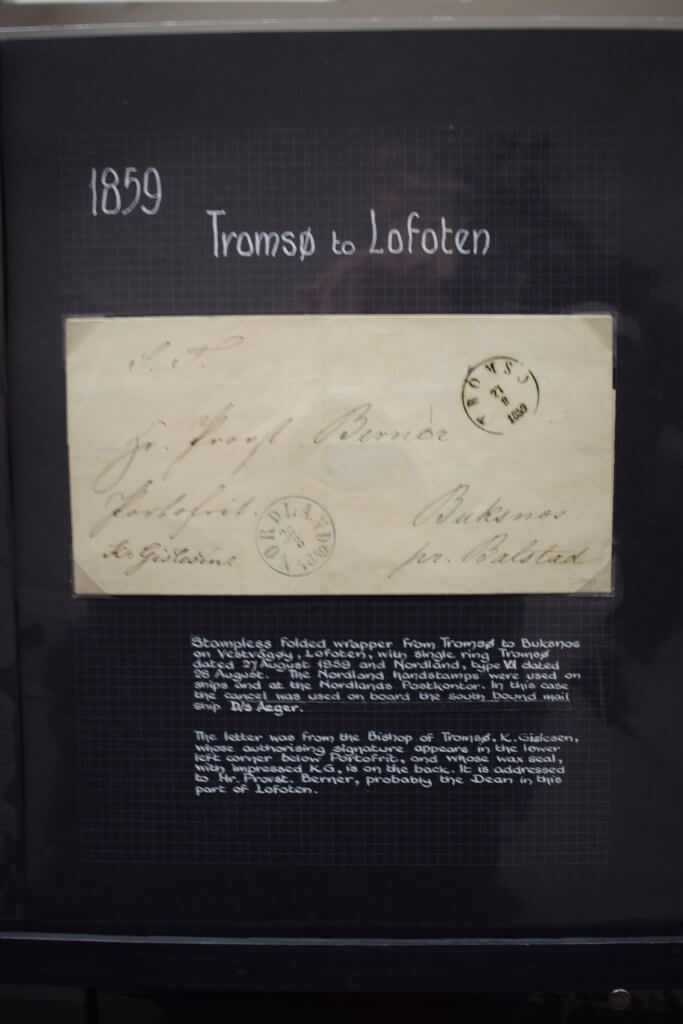 1859
Tromsø to Lofoten
S. T.
TROMSØ
27
8
1859
Hr. Provst Berner
Portofrit.
Buksnes
NORDLANDSPE
28
8
Kr. Gislesen
pr. Balstad
Stampless folded wrapper from Tromsø to Buksnos
on Vestvågøy, Lofoten, with single ring Tromsø
dated 27 August 1859 and Nordland, type VI dated
28 August. The Nordland handstamps were used on
ships and at the Nordlands Postkontor. In this case
the cancel was used on board the south bound mail
ship D/s Aeger.
The letter was from the Bishop of Tromsø, K. Gislesen,
whose authorising signature appears in the lower
left corner below Portofrit, and whose wax seal,
with impressed K.G, is on the back. It is addressed
to Hr. Provst. Berner, probably the Dean in this
part of Lofoten.